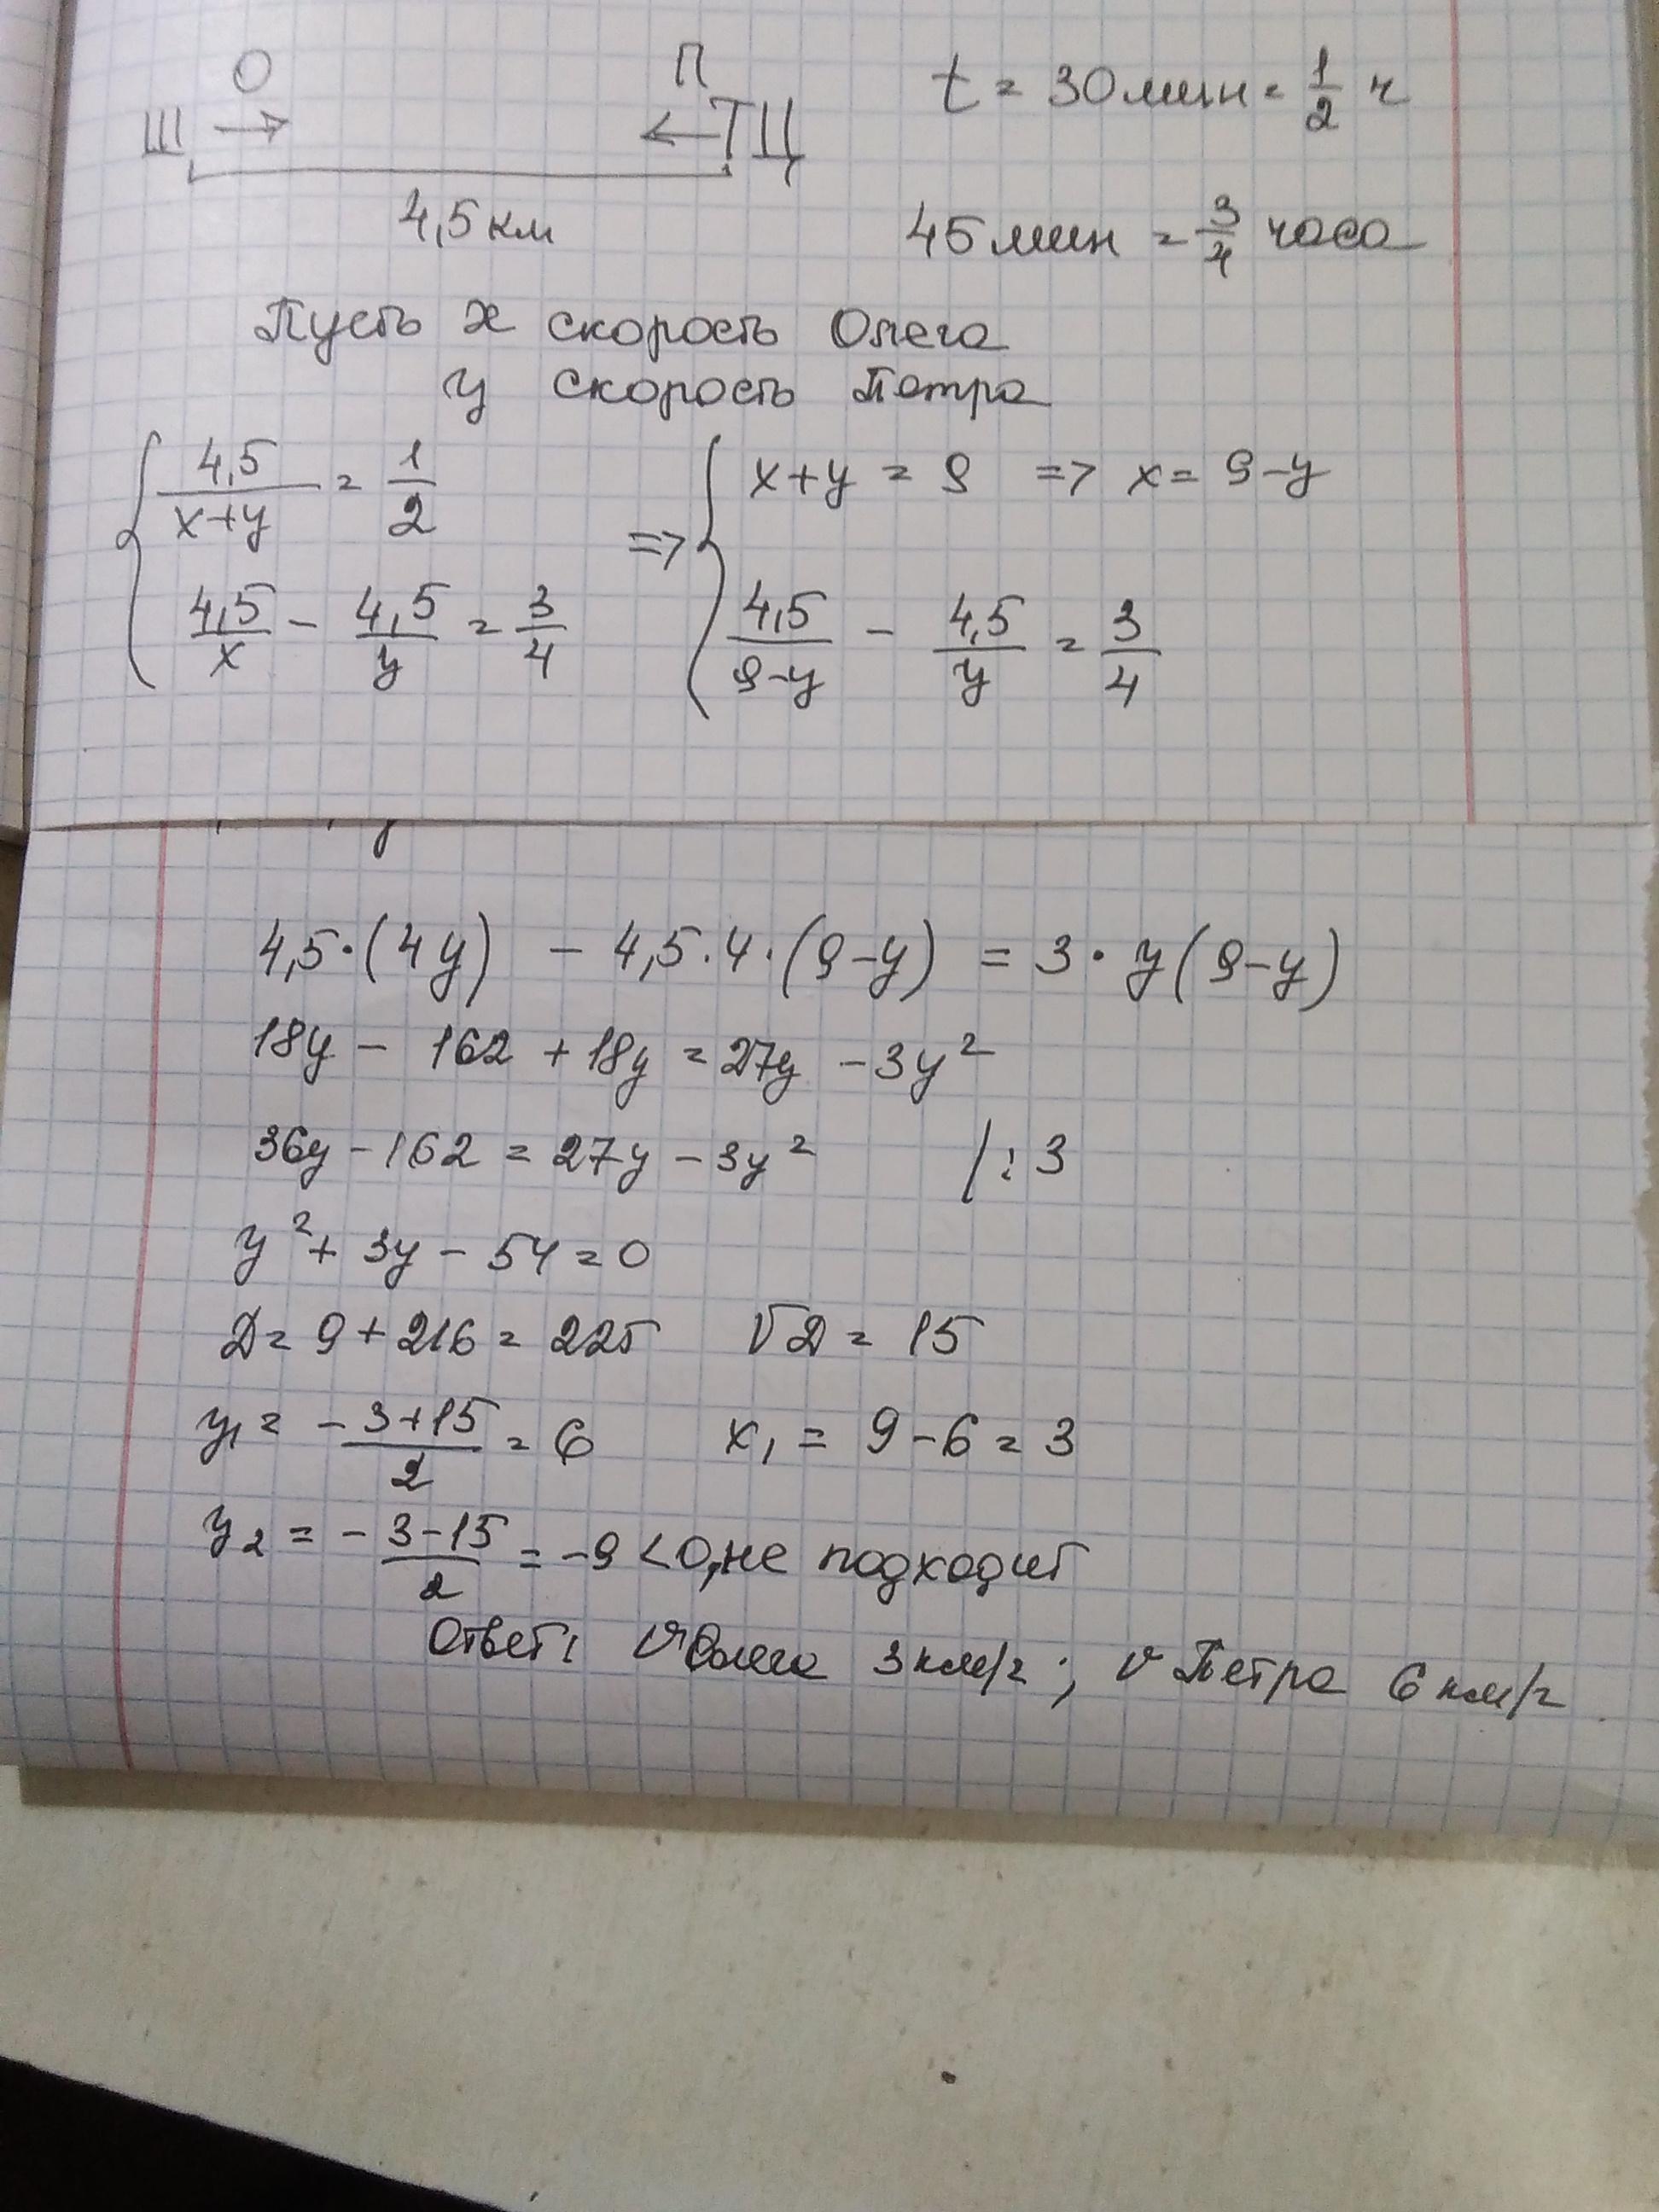 О П t = 30 мин = 1/2 ч
Ш → ← ТЦ
4,5 км 45 мин = 3/4 часа
Пусть x скорость Олега
y скорость Петра
{ 4,5/(x+y) = 1/2 => { x+y = 9 => x = 9-y
4,5/x - 4,5/y = 3/4 4,5/(9-y) - 4,5/y = 3/4
4,5·(4y) - 4,5·4·(9-y) = 3·y(9-y)
18y - 162 + 18y = 27y - 3y²
36y - 162 = 27y - 3y² /:3
y² + 3y - 54 = 0
D = 9 + 216 = 225 √D = 15
y₁ = -3+15/2 = 6 x₁ = 9-6 = 3
y₂ = -3-15/2 = -9 < 0, не подходит
Ответ: v Олега 3 км/ч; v Петра 6 км/ч